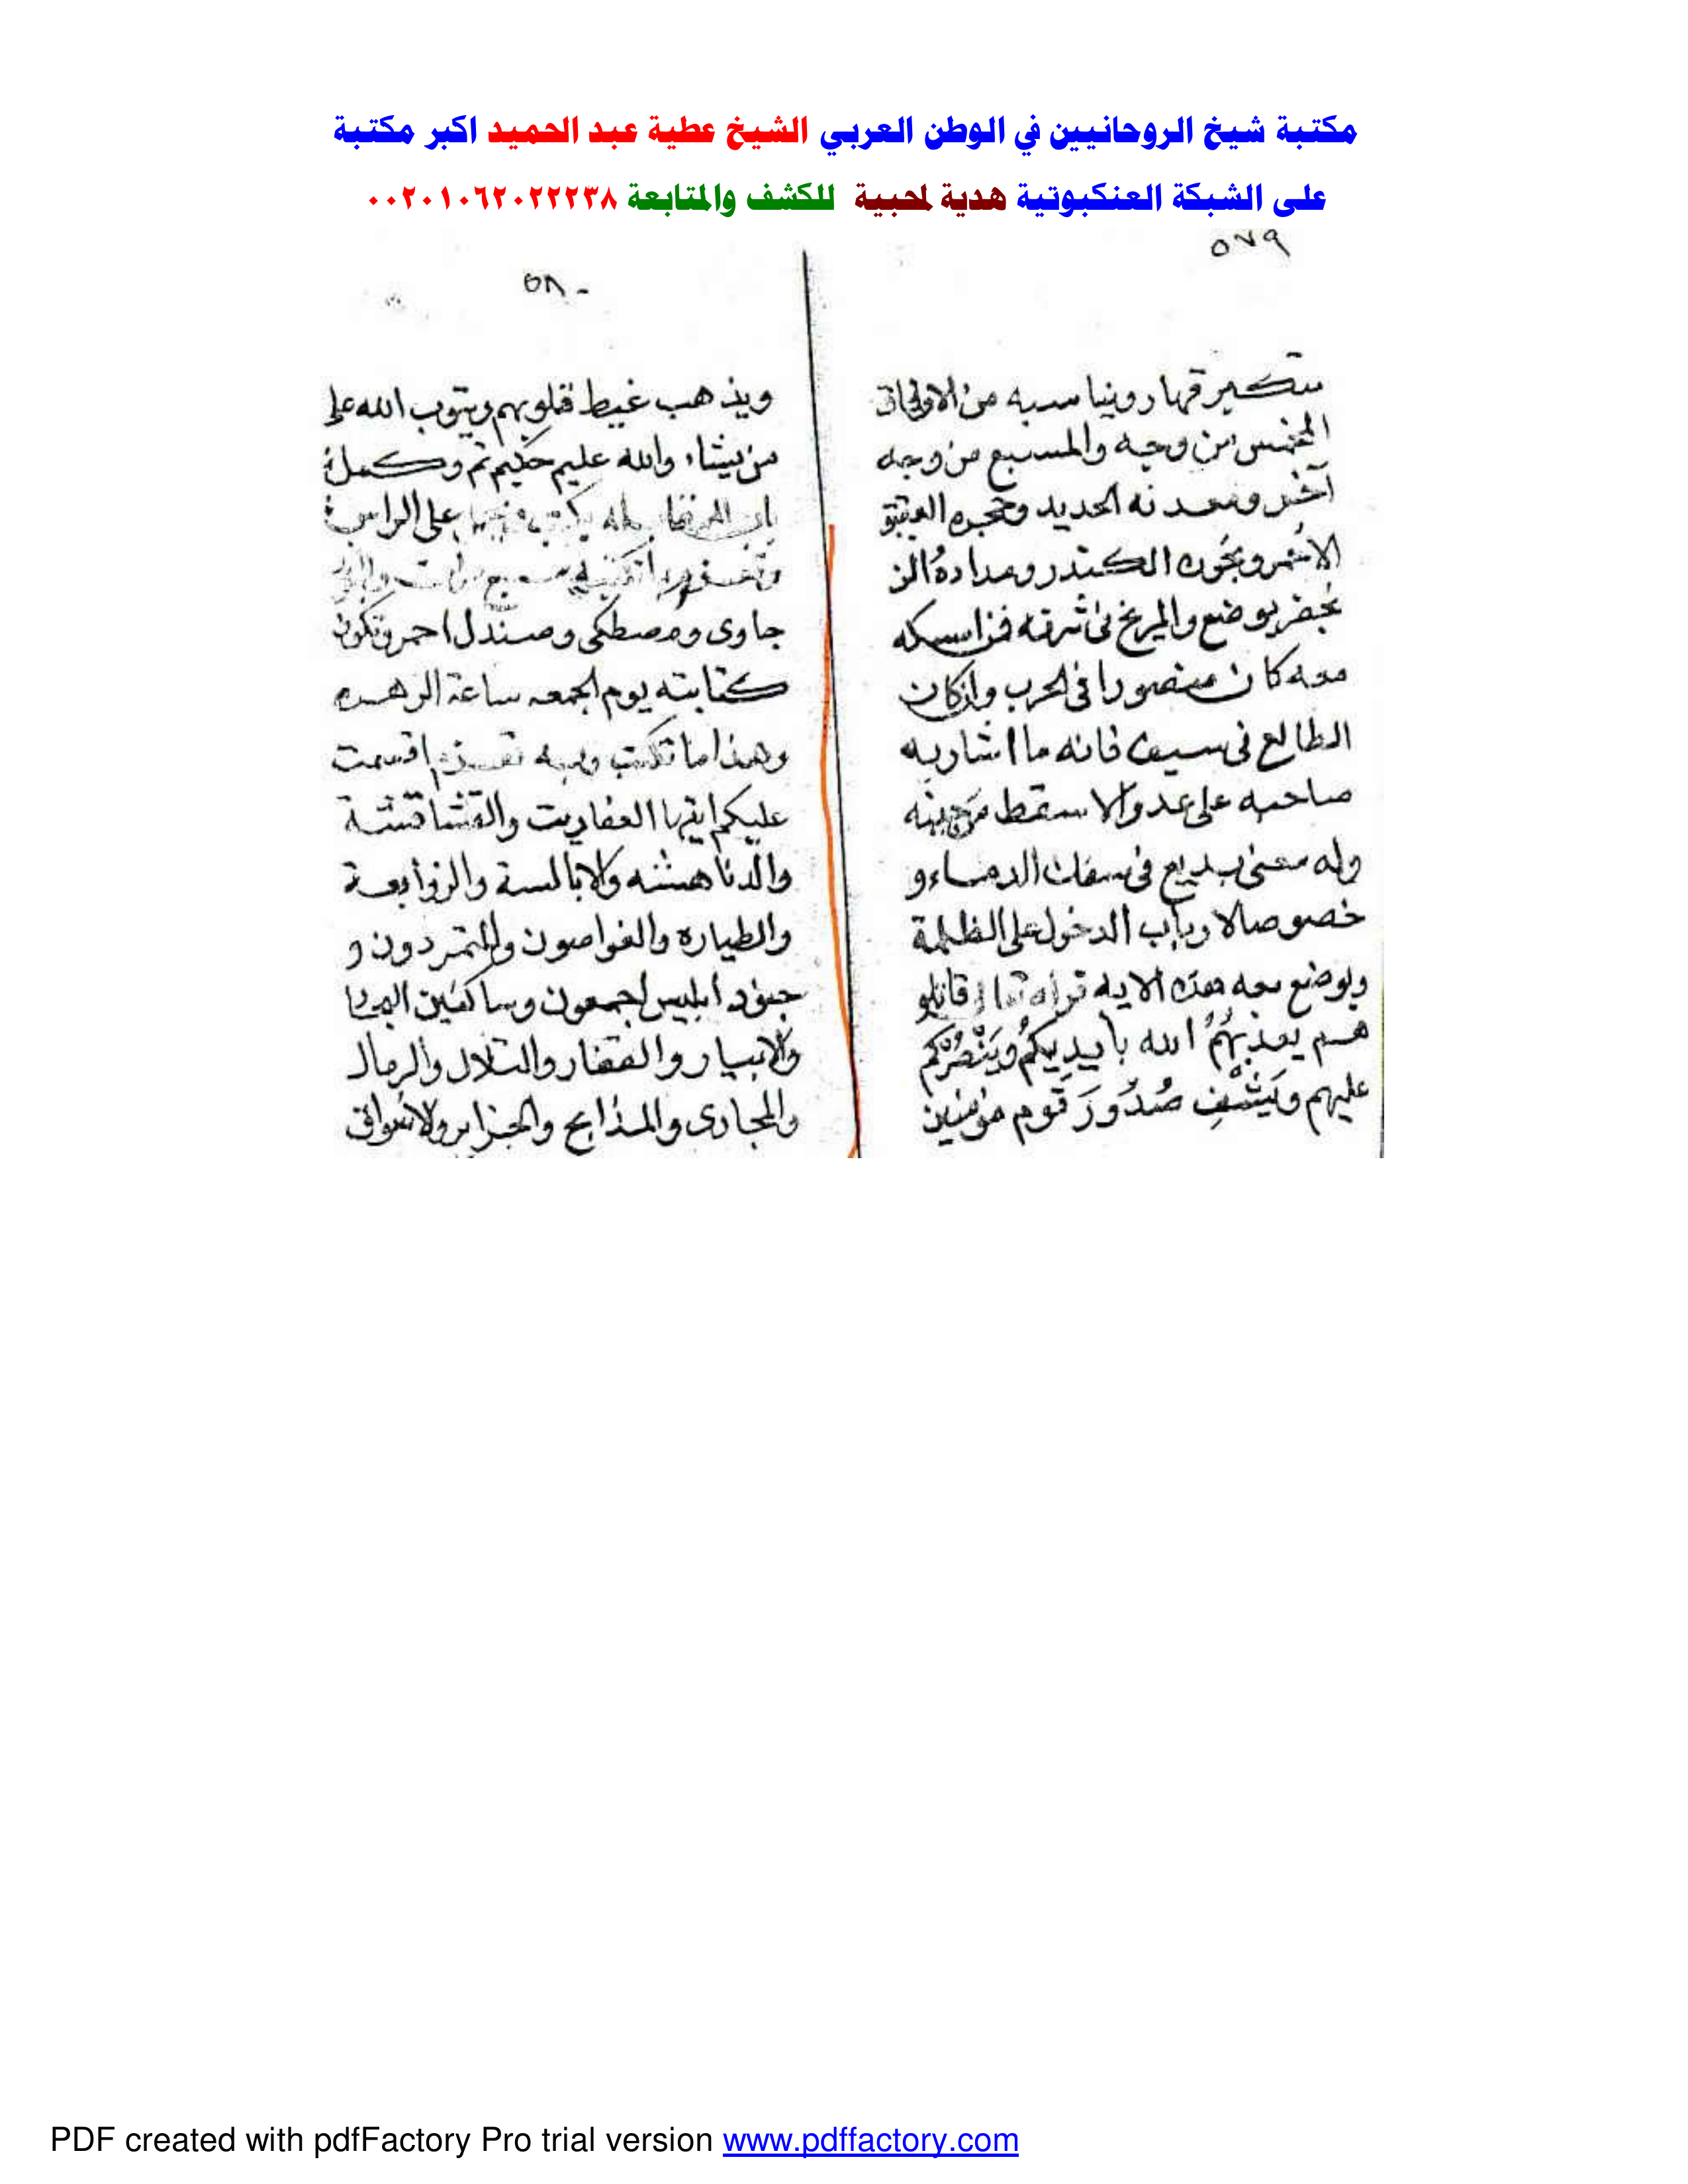 مكتبة شيخ الروحانيين في الوطن العربي الشيخ عطية عبد الحميد اكبر مكتبة
على الشبكة العنكبوتية هدية لمحبية للكشف والمتابعة ٠٠٢٠١٠٦٢٠٢٢٢٣٨
٥٧٩
ستكبر قهار وينا سبه من الاوفاق
المخمس من وجه والمسبع من وجه
آخر ومعدنه الحديد وحجره العقيق
الاحمر وبخوره الكندر ومداده الز
نجفر يوضع والمريخ فى شرفه فمن امسكه
معه كان منصورا فى الحرب وان كان
الطالع فى سيف فانه ما اشار به
صاحبه على عدو الا سقط من
وله معنى بديع فى سفك الدماء و
خصوصا لارباب الدخول على الظلمة
ويوضع معه هذه الايه قاتلو
هم يعذبهُمُ الله بأيديكُم ويَنْصُرْكُم
عليهم ويَشْفِ صُدُورَ قَوم مؤمنين
٥٨٠
ويذهب غيظ قلوبهم ويتوب الله على
من يشاء والله عليم حكيم تم وكمل
باب على الراس
سبع
جاوى ومصطكى وصندل احمر وتكون
كتابته يوم الجمعه ساعة الزهره
وهذا ما تكتب وبه تعزم اقسمت
عليكم ايها العفاريت والقشاقشة
والدناهشه والابالسة والزوابعة
والطياره والغواصون والمتمردون و
جنود ابليس اجمعون وساكنين
والابيار والقفار والتلال والرمال
والمجارى والمذابح والجزاير والاسواق
PDF created with pdfFactory Pro trial version www.pdffactory.com